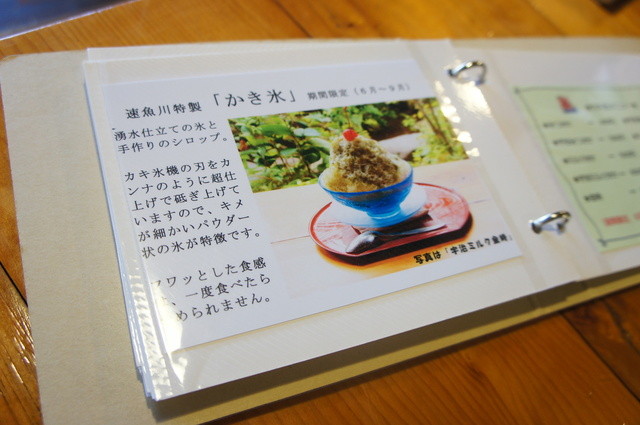 速魚川特製「かき氷」 期間限定（６月～９月）
湧水仕立ての氷と
手作りのシロップ。
カキ氷機の刃をカ
ンナのように超仕
上げで砥ぎ上げて
いますので、キメ
が細かいパウダー
状の氷が特徴です。
フワッとした食感
、一度食べたら
められません。
写真は「宇治ミルク金時」